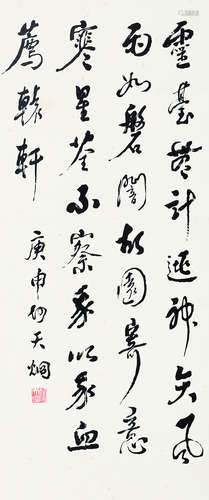 靈臺無計逃神矢風
雨如磐闇故園寄意
寒星荃不察我以我血
薦轅軒
庚申天